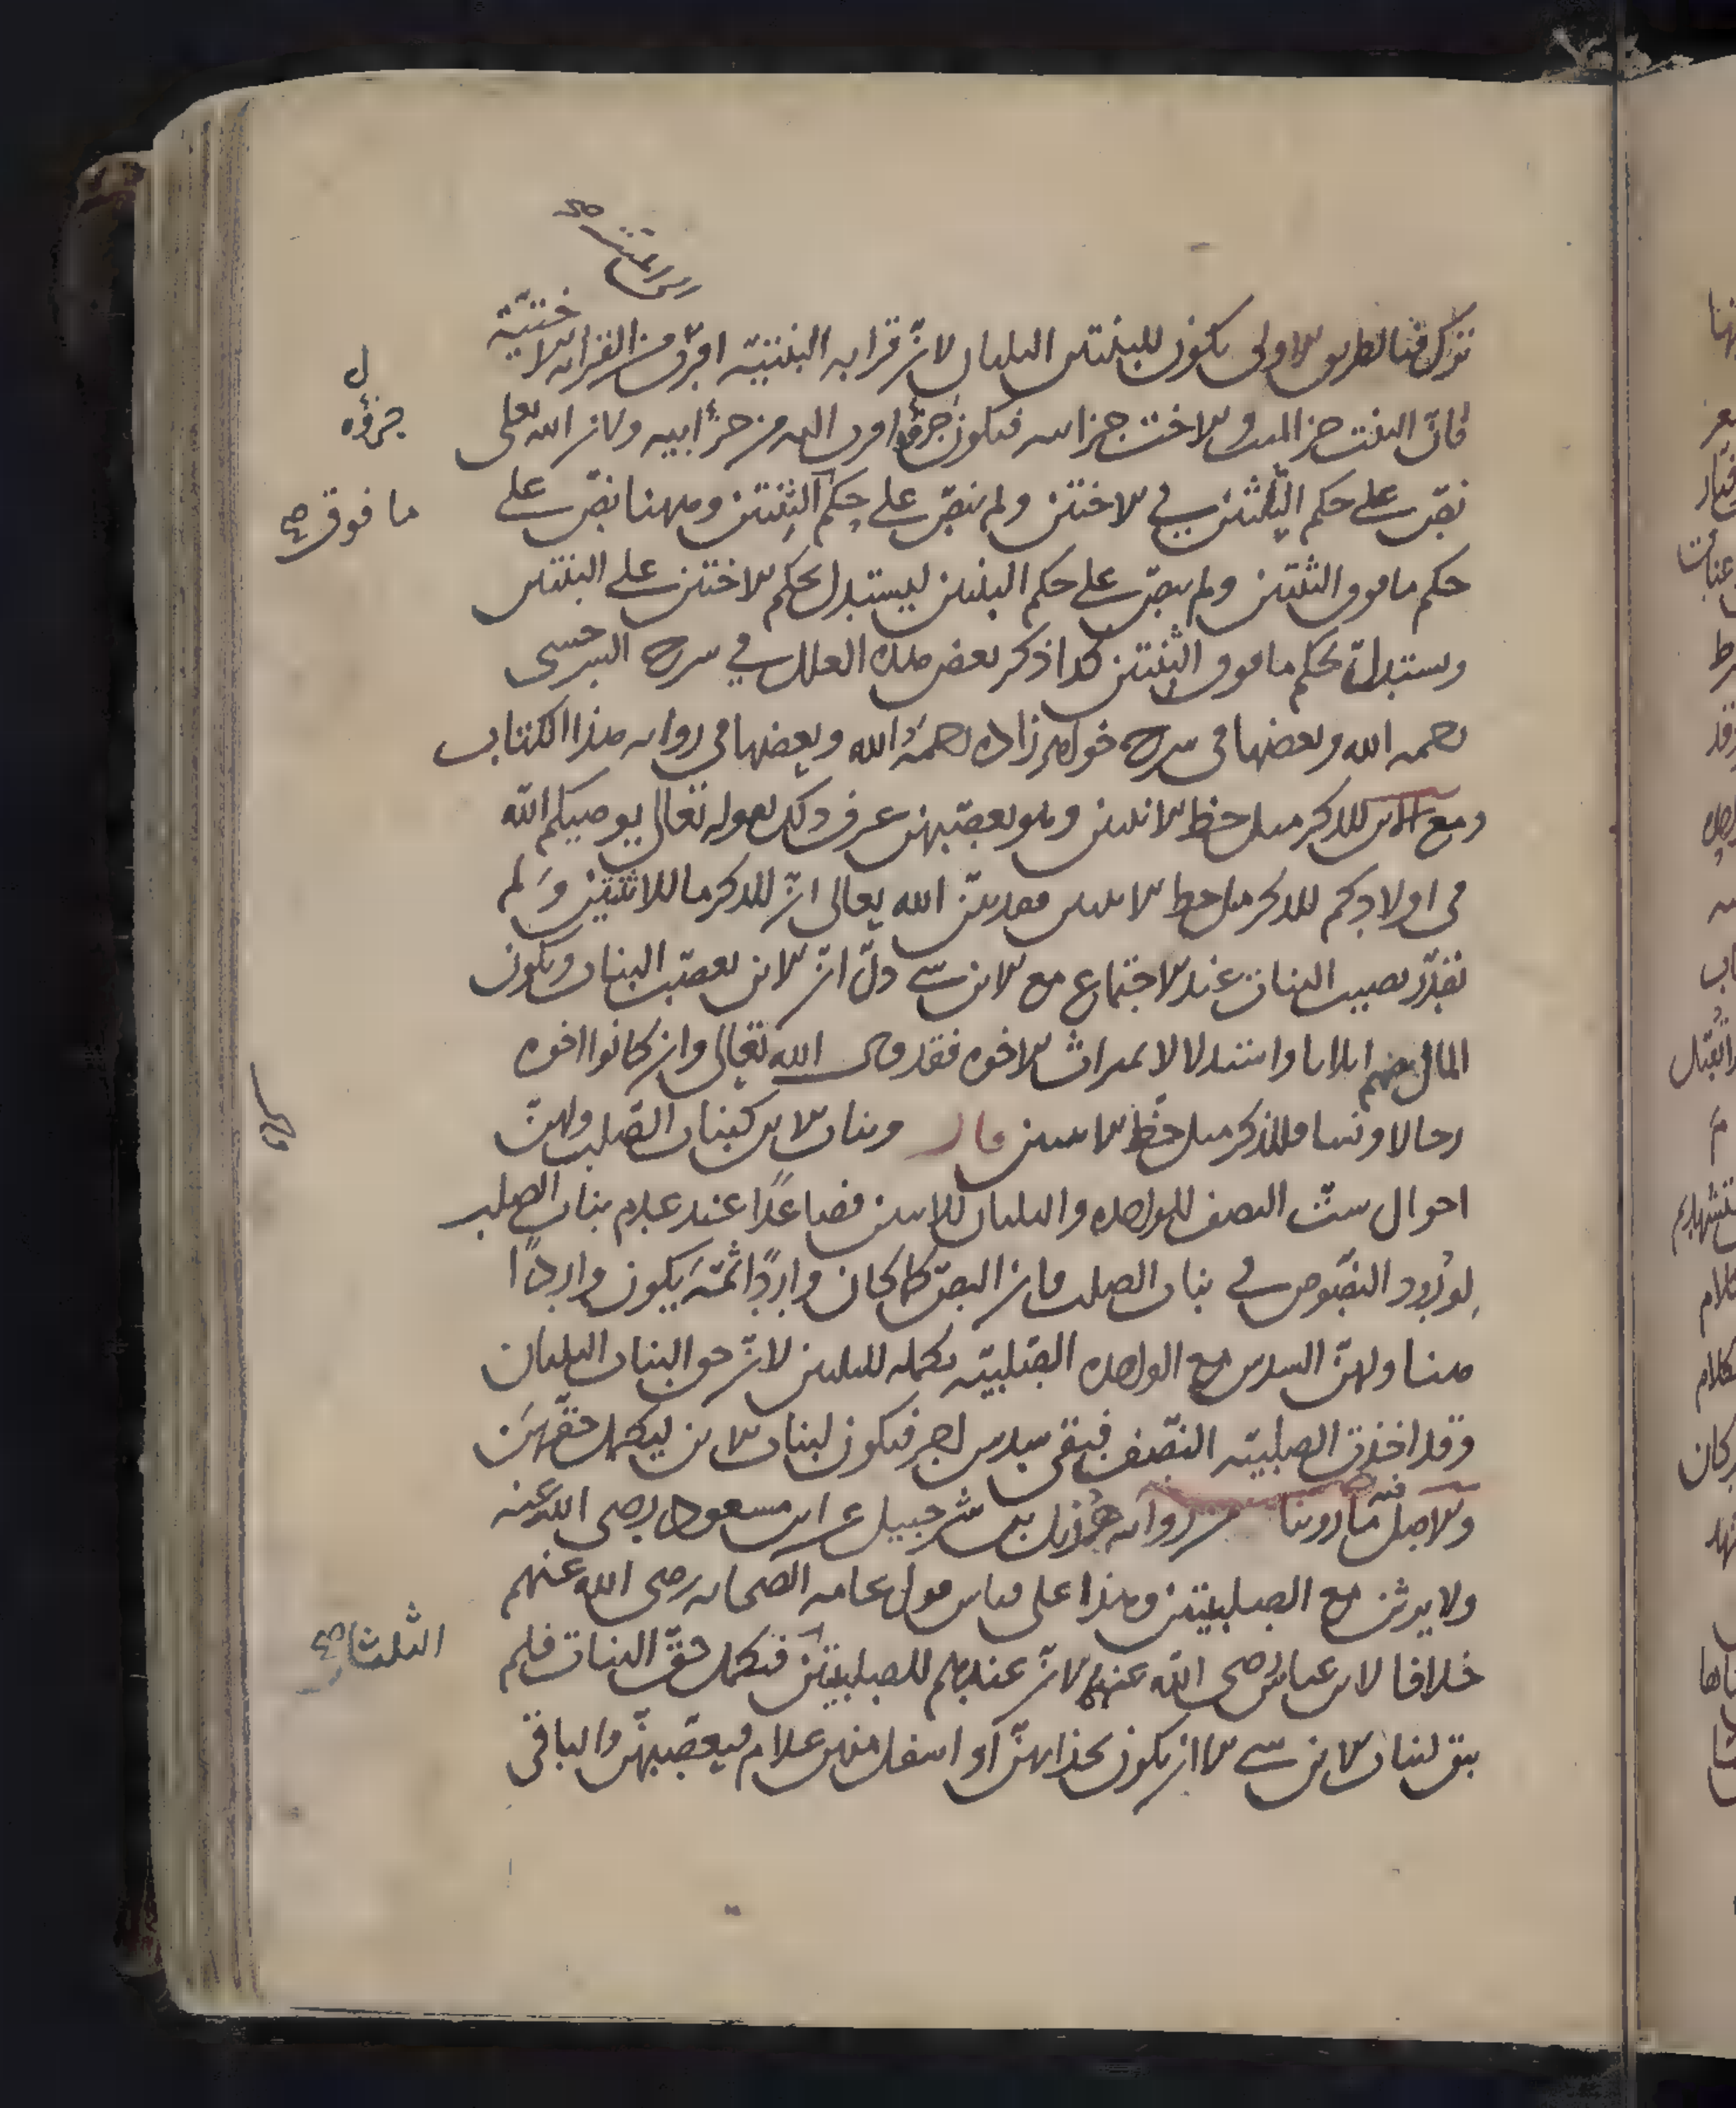 تترك فبالطريق الاولى يكون للبنتين الثلثان لان قرابه البنتية اقرب من القرابه الاختية
فان البنت جزء الميت والاخت جزء ابيه فيكون جزؤه اقرب اليه من جزء ابيه ولان الله تعالى
نص على حكم الثنتين في الاختين ولم ينص على حكم الثنتين وههنا نص على
حكم ما فوق الثنتين ولم ينص على حكم البنتين ليستدل بحكم الاختين على البنتين
ويستدل بحكم ما فوق البنتين كذا ذكر بعض هذه العلل في شرح السرخسي
رحمه الله وبعضها في شرح خواهر زاده رحمه الله وبعضها في روايه هذا الكتاب
ومع الابن للذكر مثل حظ الانثيين وهو يعصبهن عرف ذلك بقوله تعالى يوصيكم الله
في اولادكم للذكر مثل حظ الانثيين فقد بين الله تعالى ان للذكر ما للانثيين ولم
يقدر نصيب البنات عند الاجتماع مع الابن شي دل ان الابن يعصب البنات ويكون
المال بينهم اثلاثا واستدلالا بميراث الاخوه فقد قال الله تعالى وان كانوا اخوه
رجالا ونساء فللذكر مثل حظ الانثيين قال وبنات الابن كبنات الصلب ولهن
احوال ست النصف للواحده والثلثان للاثنين فصاعدا عند عدم بنات الصلب
لورود النصوص في بنات الصلب فان النص كما كان واردا ثمه يكون واردا
هنا ولهن السدس مع الواحده الصلبيه تكمله للثلثين لان حق البنات الثلثان
وقد اخذت الصلبيه النصف فبقي سدس اخر فيكون لبنات الابن ليكمل حقهن
والاصل فيه ما روينا من روايه هزيل بن شرحبيل عن ابن مسعود رضى الله عنه
ولا يرثن مع الصلبيتين وهذا على قياس قول عامه الصحابه رضى الله عنهم
خلافا لابن عباس رضى الله عنهما لان عندهم للصلبيتين فيكمل حق البنات فلم
يبق لبنات الابن شي الا ان يكون بحذائهن او اسفل منهن غلام فيعصبهن والباقي
جزؤه
ما فوق صح
الثلثان صح